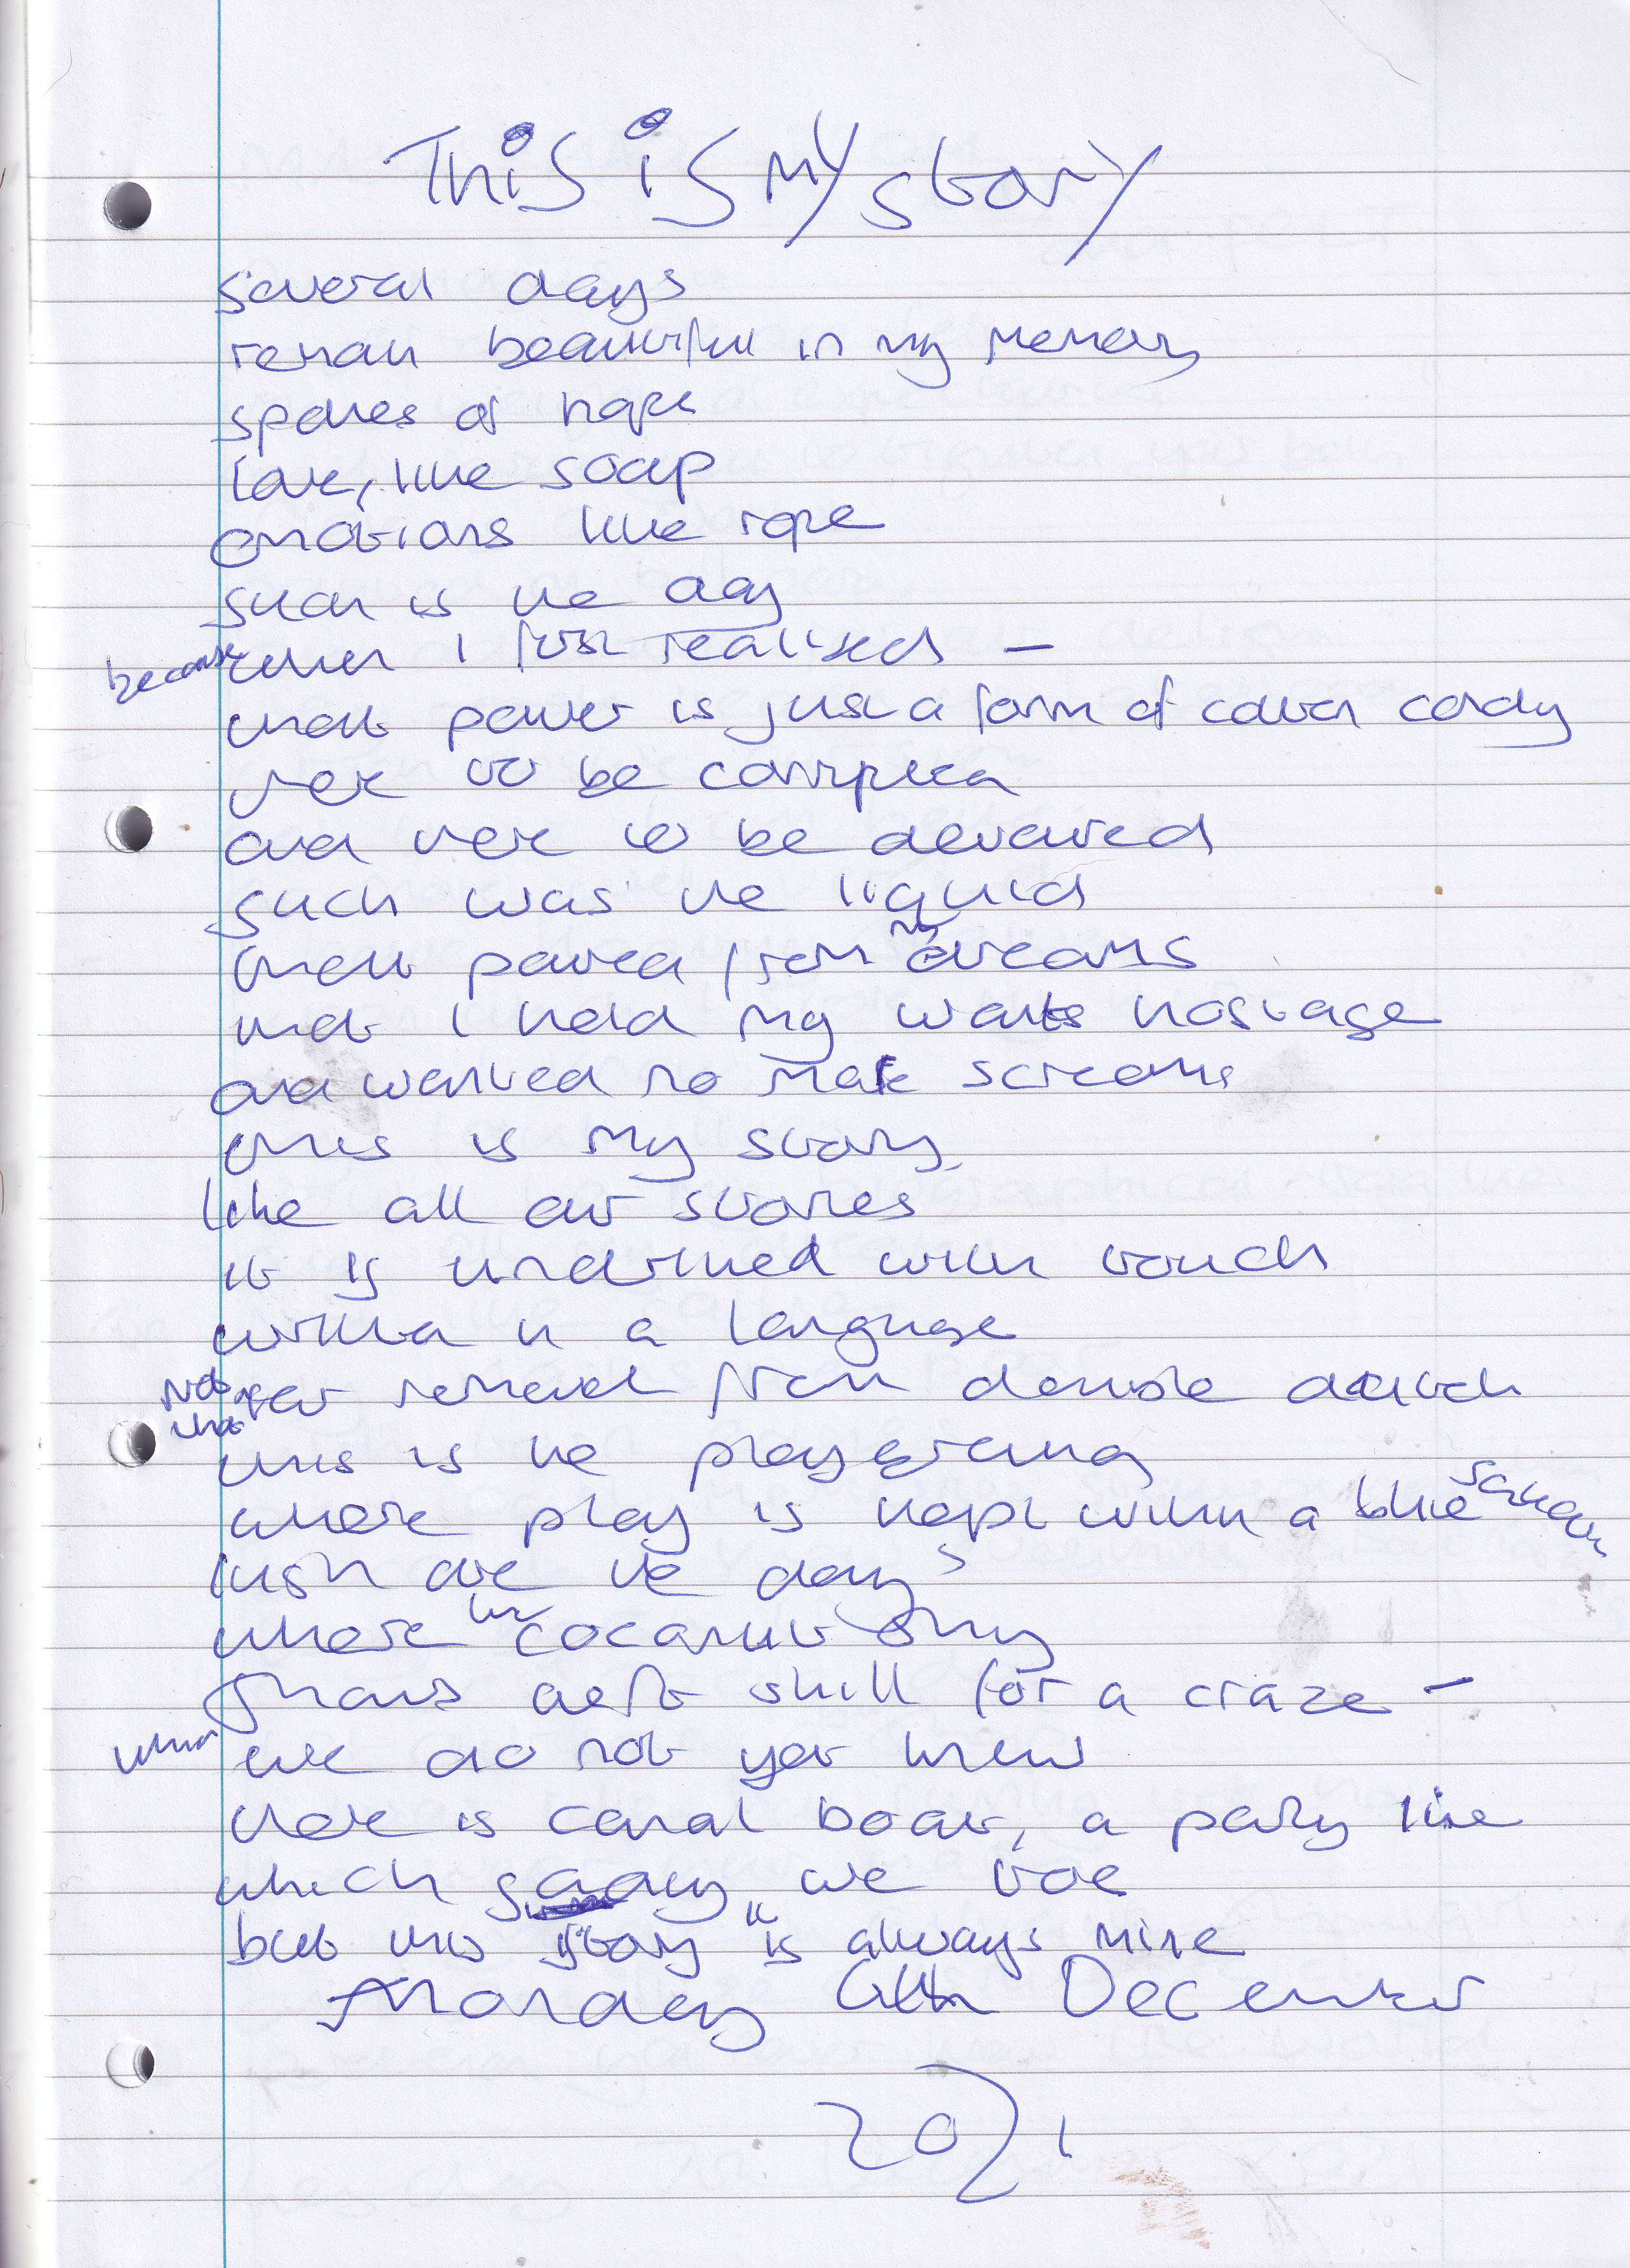 This is my story
several days
remain beautiful in my memory
spores of hope
love, like soap
emotions like rope
such is the day
because when I first realised —
that power is just a form of candy
there to be
and there to be devoured
such was the liquid
that poured from my dreams
that I held my wants hostage
and wanted no more screams
this is my story
like all our stories
it is underlined with touch
written in a language
not that far removed from double dutch
this is the playground
where play is kept within a blue
lush are the days
where the coconut shy
deft skill for a craze —
when we do not yet know
there is canal boat, a party line
which story we toe
but this "story" is always mine
Monday 6th December
2021